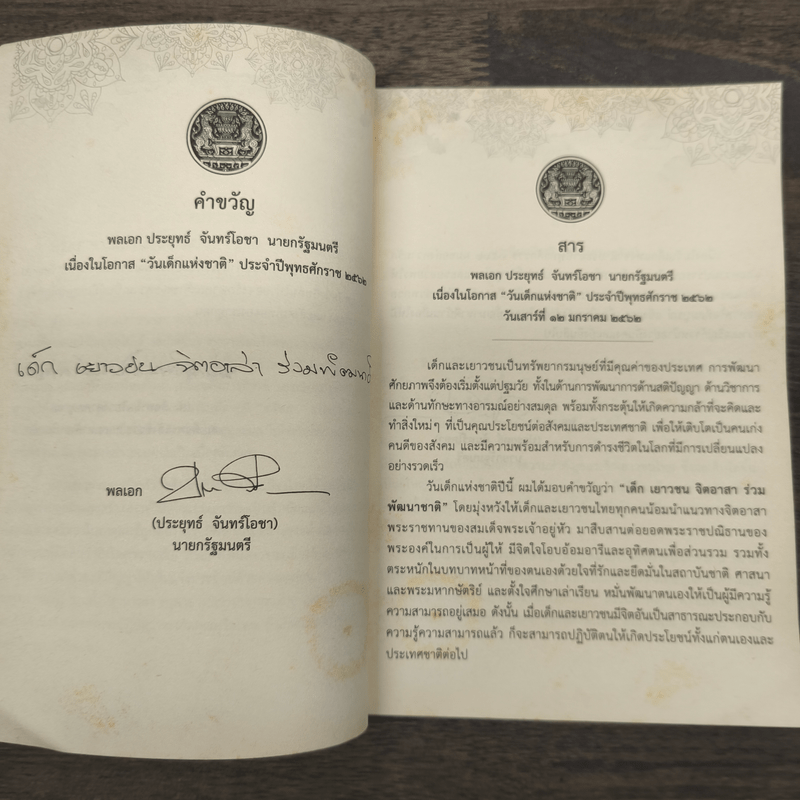 คำขวัญ
พลเอก ประยุทธ์ จันทร์โอชา นายกรัฐมนตรี
เนื่องในโอกาส “วันเด็กแห่งชาติ” ประจำปีพุทธศักราช ๒๕๖๒
เด็ก เยาวชน จิตอาสา ร่วมพัฒนา
พลเอก
(ประยุทธ์ จันทร์โอชา)
นายกรัฐมนตรี
สาร
พลเอก ประยุทธ์ จันทร์โอชา นายกรัฐมนตรี
เนื่องในโอกาส “วันเด็กแห่งชาติ” ประจำปีพุทธศักราช ๒๕๖๒
วันเสาร์ที่ ๑๒ มกราคม ๒๕๖๒
เด็กและเยาวชนเป็นทรัพยากรมนุษย์ที่มีคุณค่าของประเทศ การพัฒนา
ศักยภาพจึงต้องเริ่มตั้งแต่ปฐมวัย ทั้งในด้านการพัฒนาการด้านสติปัญญา ด้านวิชาการ
และด้านทักษะทางอารมณ์อย่างสมดุล พร้อมทั้งกระตุ้นให้เกิดความกล้าที่จะคิดและ
ทำสิ่งใหม่ๆ ที่เป็นคุณประโยชน์ต่อสังคมและประเทศชาติ เพื่อให้เติบโตเป็นคนเก่ง
คนดีของสังคม และมีความพร้อมสำหรับการดำรงชีวิตในโลกที่มีการเปลี่ยนแปลง
อย่างรวดเร็ว
วันเด็กแห่งชาติปีนี้ ผมได้มอบคำขวัญว่า “เด็ก เยาวชน จิตอาสา ร่วม
พัฒนาชาติ” โดยมุ่งหวังให้เด็กและเยาวชนไทยทุกคนน้อมนำแนวทางจิตอาสา
พระราชทานของสมเด็จพระเจ้าอยู่หัว มาสืบสานต่อยอดพระราชปณิธานของ
พระองค์ในการเป็นผู้ให้ มีจิตใจโอบอ้อมอารีและอุทิศตนเพื่อส่วนรวม รวมทั้ง
ตระหนักในบทบาทหน้าที่ของตนเองด้วยใจที่รักและยึดมั่นในสถาบันชาติ ศาสนา
และพระมหากษัตริย์ และตั้งใจศึกษาเล่าเรียน หมั่นพัฒนาตนเองให้เป็นผู้มีความรู้
ความสามารถอยู่เสมอ ดังนั้น เมื่อเด็กและเยาวชนมีจิตอันเป็นสาธารณะประกอบกับ
ความรู้ความสามารถแล้ว ก็จะสามารถปฏิบัติตนให้เกิดประโยชน์ทั้งแก่ตนเองและ
ประเทศชาติต่อไป